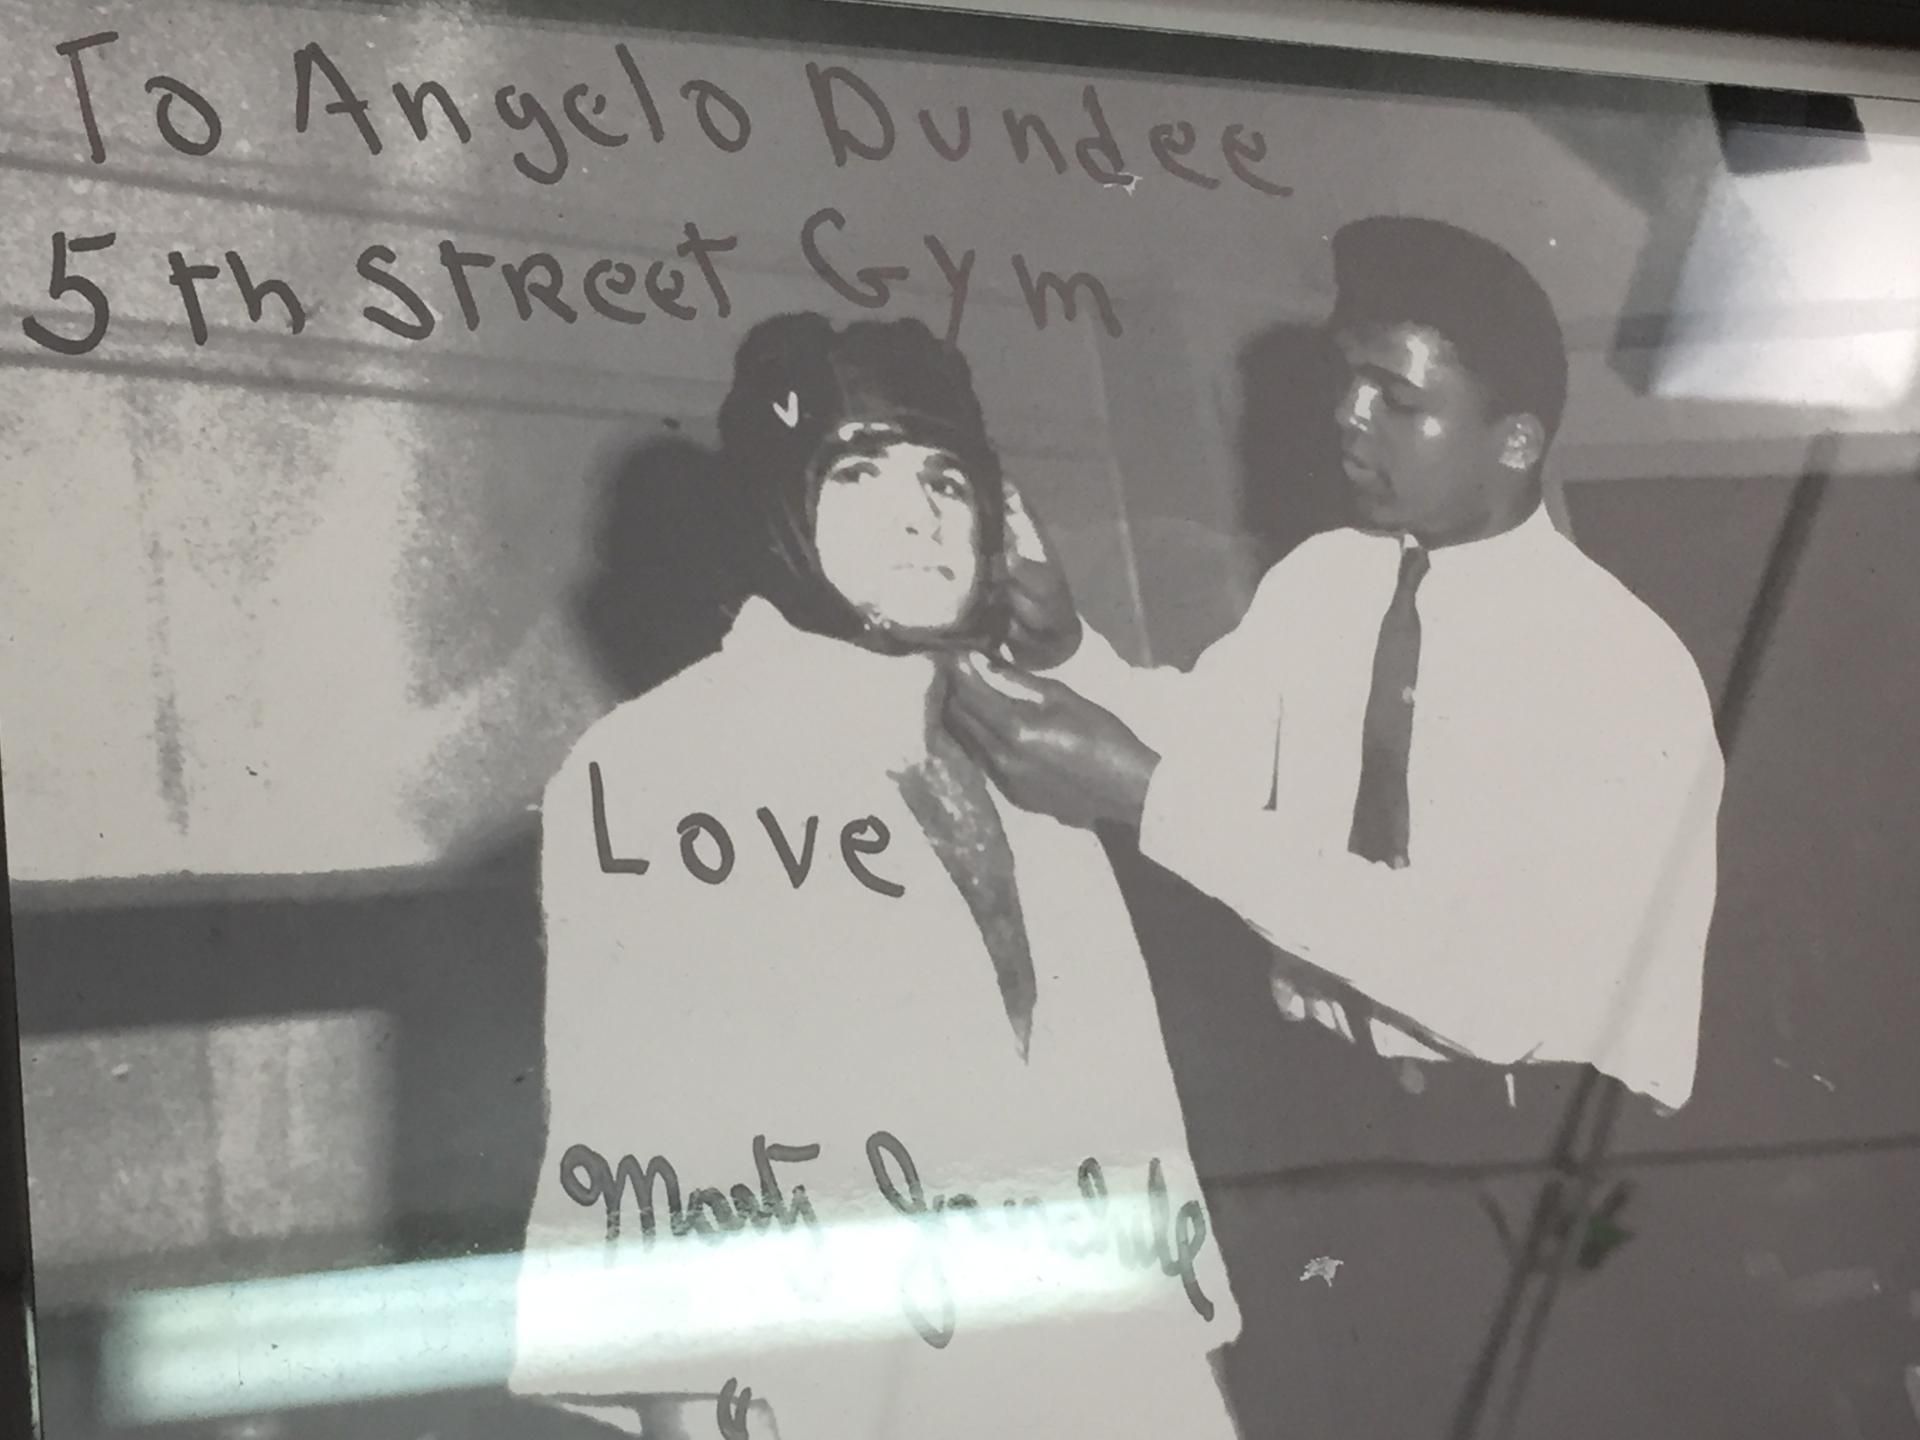 To Angelo Dundee
5th Street Gym
Love
Marty